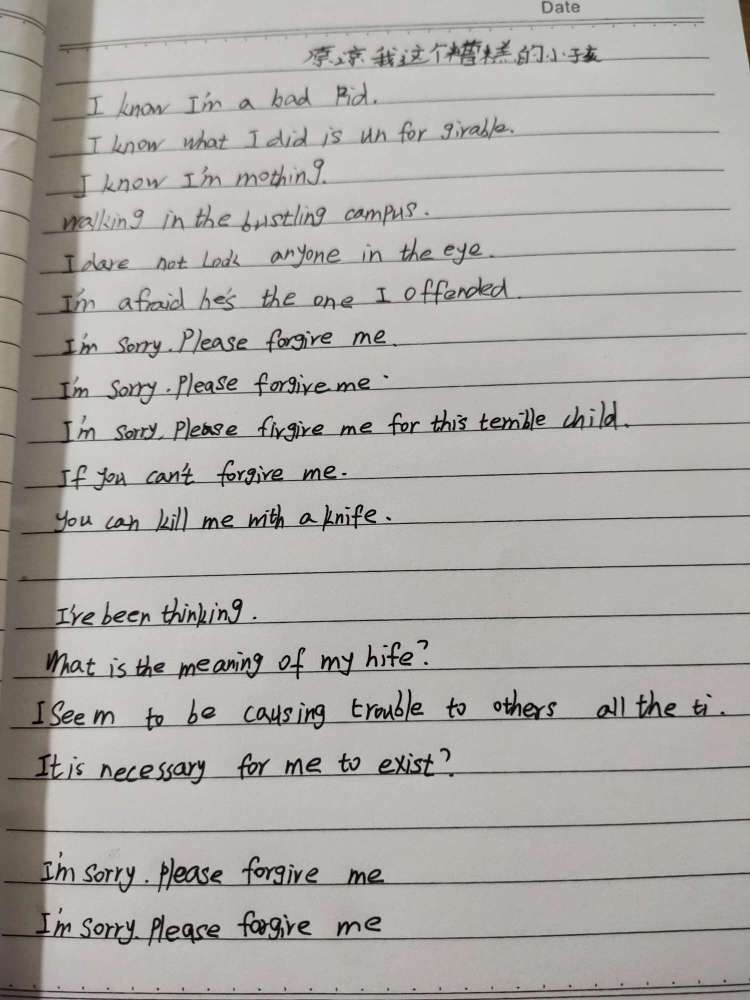 Date
原谅我这个糟糕的小孩
I know I'm a bad kid.
I know what I did is un for givable.
I know I'm mothing.
walking in the bustling campus.
I dare not look anyone in the eye.
I'm afraid he's the one I offended.
I'm sorry. Please forgive me.
I'm sorry. Please forgive me.
I'm sorry. Please firgive me for this temible child.
If you can't forgive me.
You can kill me with a knife.
I've been thinking.
What is the meaning of my hife?
I seem to be causing trouble to others all the ti.
It is necessary for me to exist?
I'm sorry. Please forgive me
I'm sorry. Please forgive me